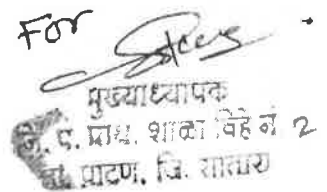 For
मुख्याध्यापक
जि. प. प्राथ. शाळा विहे नं 2
ता. पाटण, जि. सातारा